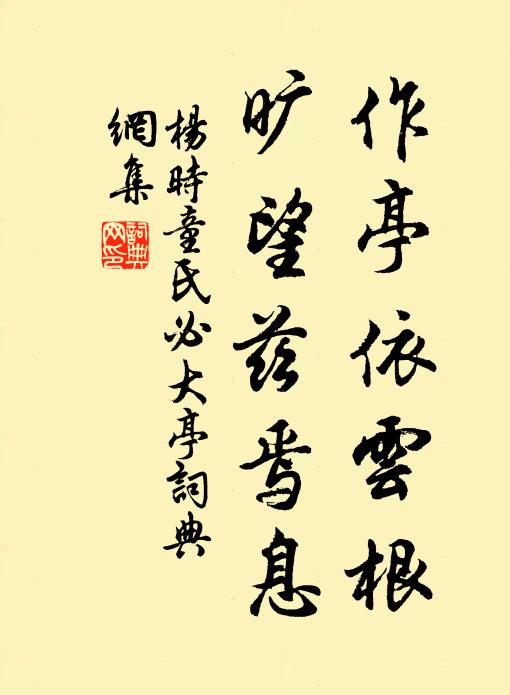 作亭依雲根
旷望茲焉息
楊時童氏必大亭詞典
網集
詞典
网印